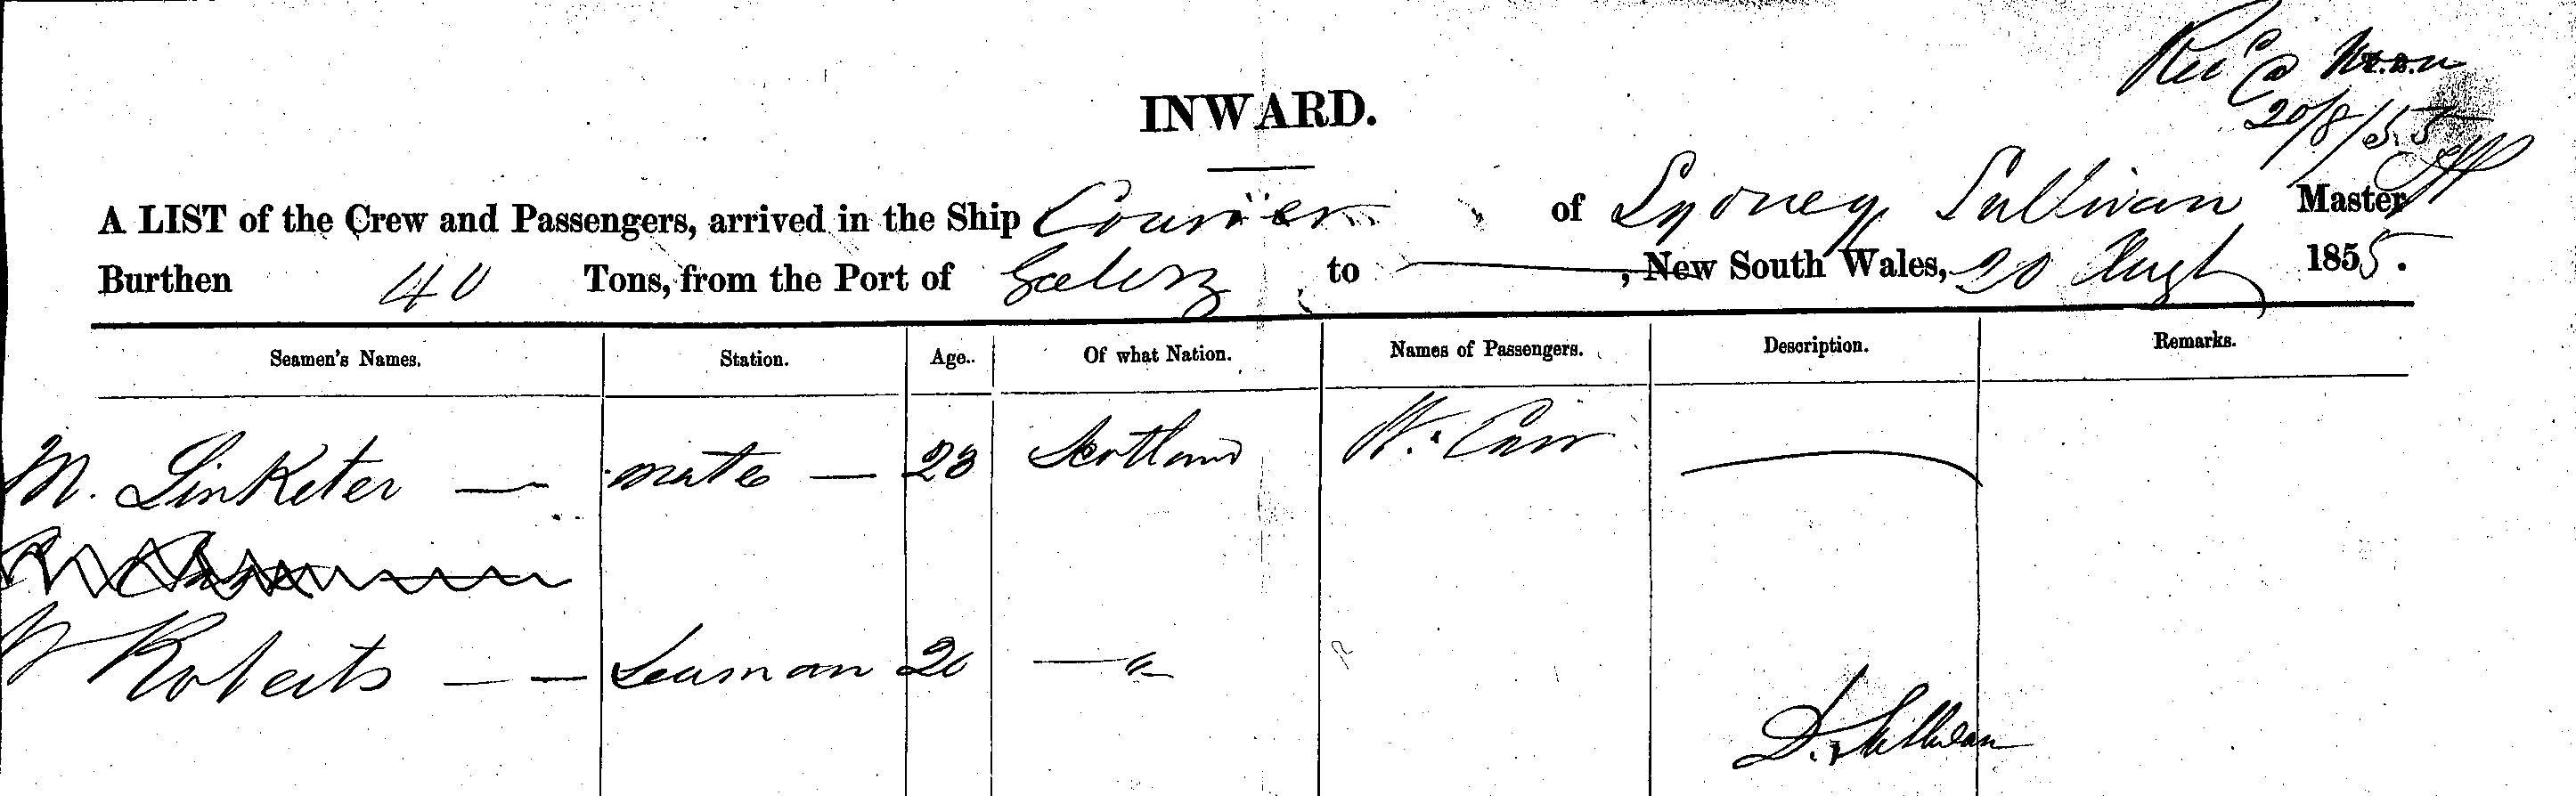 Rec @ Noon
20/8/55
INWARD.
A LIST of the Crew and Passengers, arrived in the Ship Courier of Sydney Sullivan Master
Burthen 40 Tons, from the Port of to ———, New South Wales, 20 Augt 1855.
Seamen's Names. Station. Age. Of what Nation. Names of Passengers. Description. Remarks.
M. Linketer — mate — 23 Scotland W. Carr
W Roberts — — Seaman 20 — " —
D. Sullivan